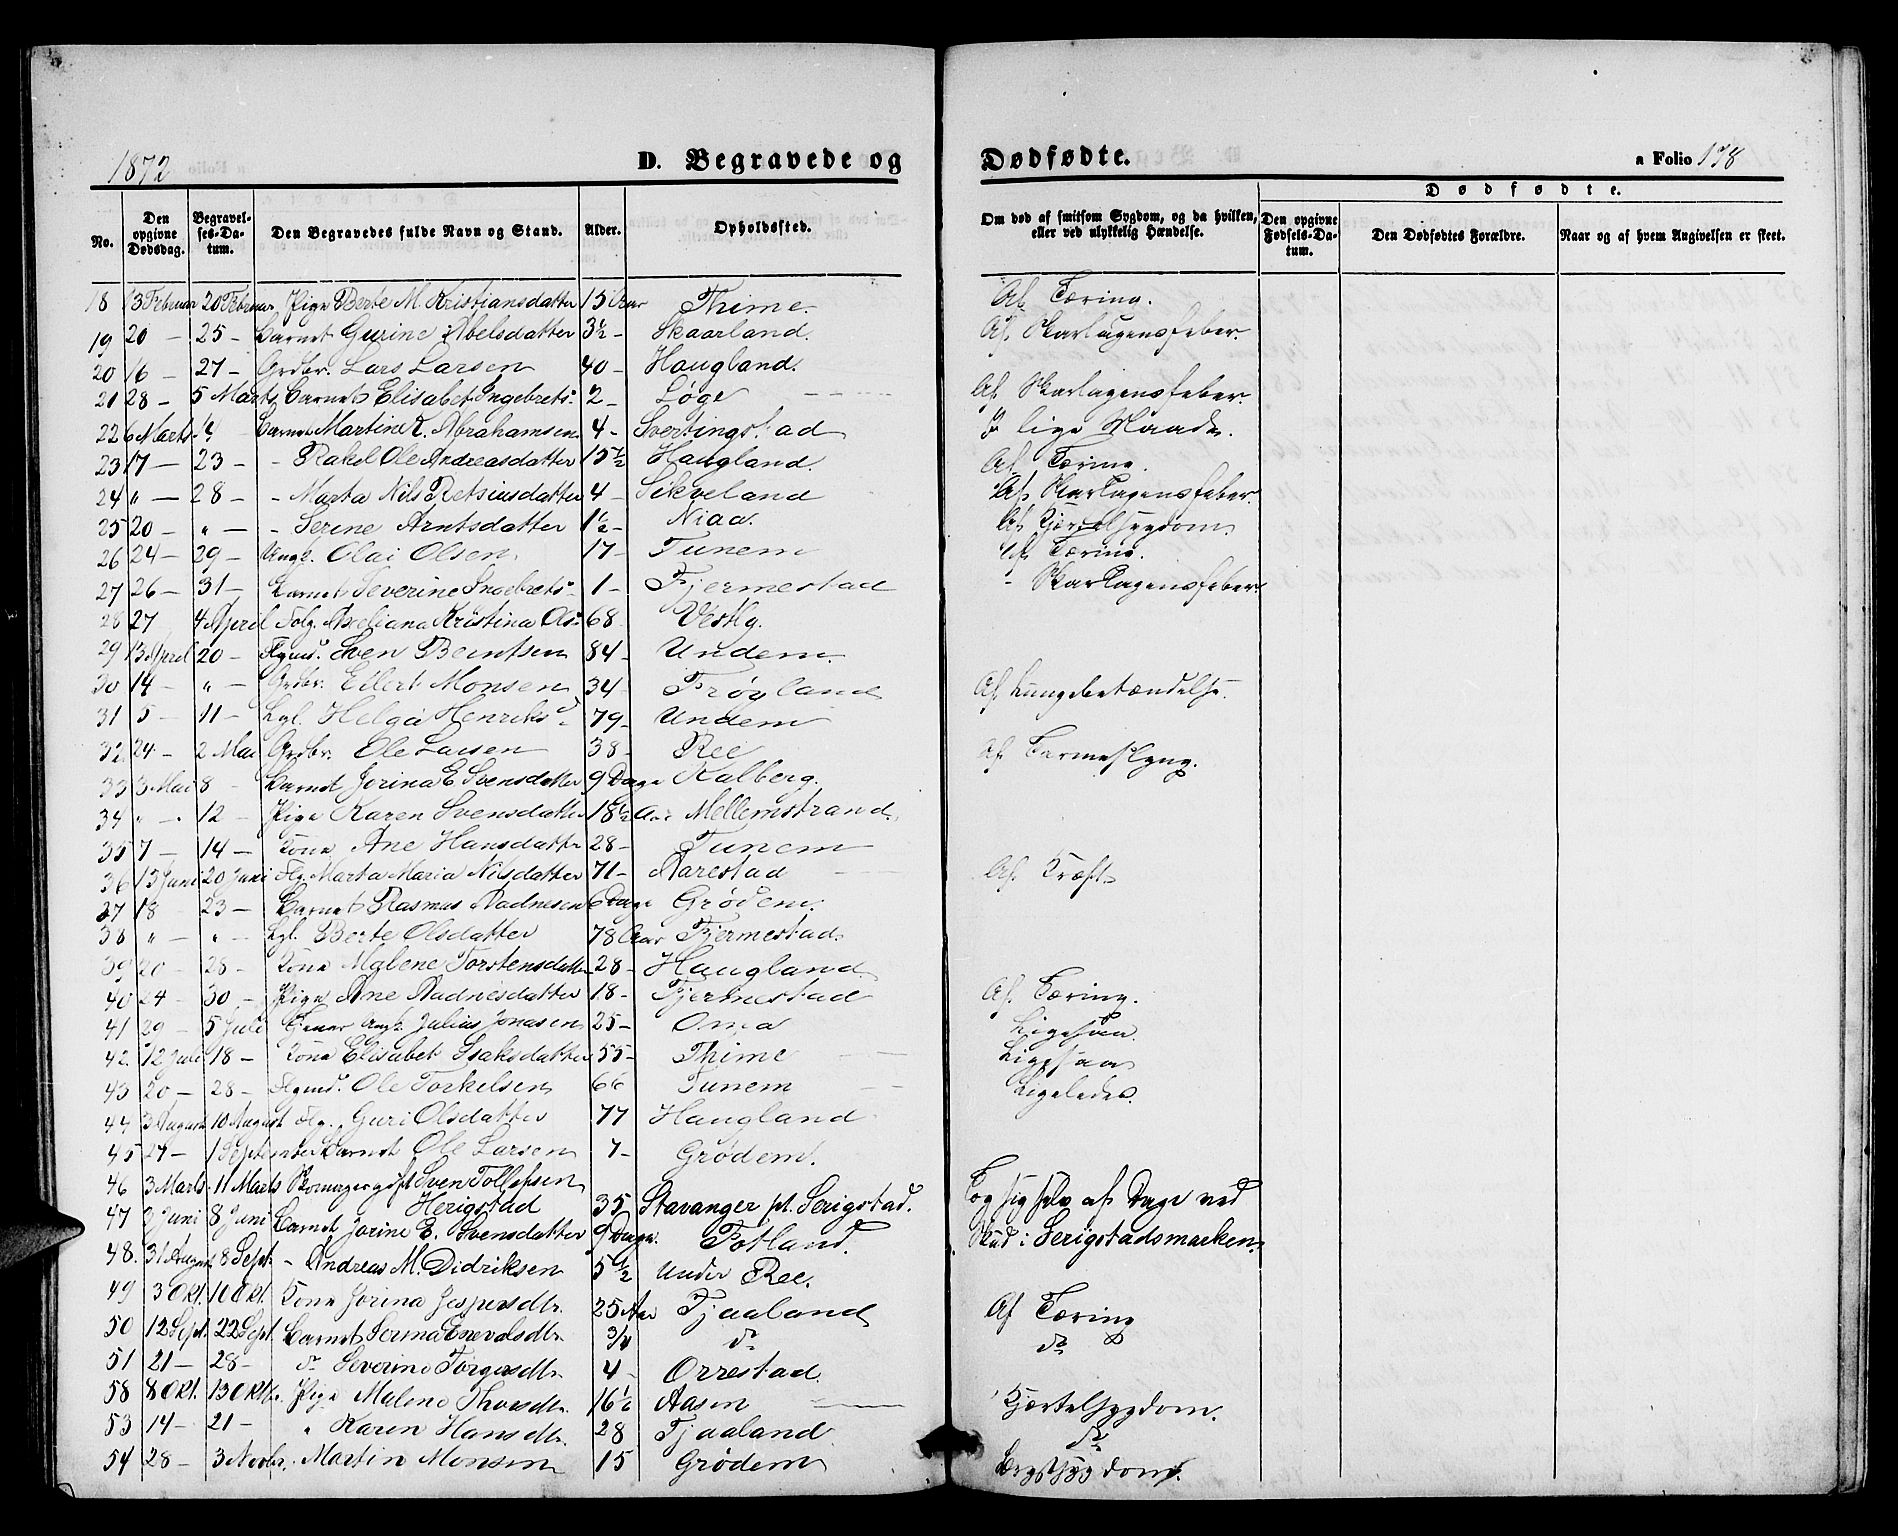 1872
D. Begravede og Dødfødte.
a Folio 178
Dødfødte.
No.
Den opgivne Dødsdag.
Begravelses-Datum.
Den Begravedes fulde Navn og Stand.
Alder.
Opholdssted.
Om død af smitsom Sygdom, og da hvilken, eller ved ulykkelig Hændelse.
Den opgivne Fødsels-Datum.
Den Dødfødtes Forældre.
Naar og af hvem Angivelsen er skeet.
18 13 Februar 20 Februar Pige Berte M. Kristiansdatter 15 Aar Thime. Af Tæring.
19 20 — 25 — Barnet Gurine Abelsdatter 3½ - Skaarland. Af Skarlagensfeber.
20 16 — 27 — Grdbr. Lars Larsen 40 - Haugland.
21 28 - 5 Marts Barnet Elisabet Ingebrets. 2 - Løge Af Skarlagensfeber.
22 6 Marts Barnet Martine K. Abrahamsen 4 - Svertingstad I lige Maade.
23 17 — 23 — - Rakel Ole Andreasdatter 15½ Haugland. Af Tæring.
24 " — 28 — - Marta Nils Retsiusdatter 4 - Sikveland Af Skarlagensfeber.
25 20 — " — - Serine Arntsdatter 1½ - Niaa. Af Kjertelsygdom.
26 24 — 29 — Ungk. Olai Olsen 17 - Tunem Af Tæring.
27 26 — 31 — Barnet Severine Ingebrets. 1 - Fjermestad - Skarlagensfeber.
28 27 4 April Folg. Axeliana Kristina Ols. 68 Vestly.
29 13 April 20 — Flgmd. Sven Bentsen 84 - Undem.
30 14 — " — Grdbr. Eilert Monsen 34 - Frøyland Af Lungebetændelse.
31 5 — 11 — Lgl. Helga Henriks. 79 - Undem
32 24 - 2 Mai Grdbr. Ole Larsen 38 - Ree Af Tarmeslyng.
33 3 Mai 8 - Barnet Jorina E Svensdatter 9 Dage Kalberg.
34 " - 12 — Pige Karen Svensdatter 18½ Aar Mellemstrand.
35 7 — 14 — Kona Ane Hansdatter 28 - Tunem
36 13 Juni 20 Juni Flg. Marta Maria Nilsdatter 71 - Aarestad Af Kræft.
37 18 23 — Barnet Rasmus Aadnesen 6 Dage Grødem.
38 " — " — Lgl. Berte Olsdatter 78 Aar Fjermestad.
39 20 — 28 - Kona Malene Torstensdatter 28 - Haugland
40 24 - 30 — Pige Ane Aadnesdatter 18 - Fjermestad Af Tæring.
41 29 — 5 Juli Ungk. Julius Jonasen 25 - Oma Ligesaa.
42 12 Juli 18 — Kona Elisabet Isaksdatter 55 - Thime Ligesaa
43 20 — 28 — Flgmd. Ole Torkelsen 66 Tunem Ligeledes.
44 3 August 10 August Flg. Guri Olsdatter 77 Haugland
45 27 — 1 September Barnet Ole Larsen 7 - Grødem.
46 3 Marts 11 Marts Sven Tollefsen
Herigstad 35 Stavanger pt. Serigstad. Tog sig selv af Dage ved
47 2 Juni 8 Juni Barnet Jorine E. Svensdatter 9 Dage. Fotland. Skud i Serigstadsmarken.
48. 31 August 8 Sept. - Andreas M. Didriksen 5½ Under Ree.
49 3 Okt. 10 Okt. Kona Jorina Jespersdtr. 25 Aar Fjaaland Af Tæring
50 12 Sept. 22 Sept. Barnet Serina Enevalsdtr. 3/4 do do
51 21 — 28 - do Severine Torgersdtr. 4 - Orrestad.
58 8 Okt. 13 Oktbr. Pige Malene Thoresdtr. 16½ Aasen Kjertelsygdom.
53 14 - 21 — " Karen Hansdtr. 28 Fjaaland. do
54 28 — 3 Novbr. Martin Monsen 15 Grødem Brystsygdom.